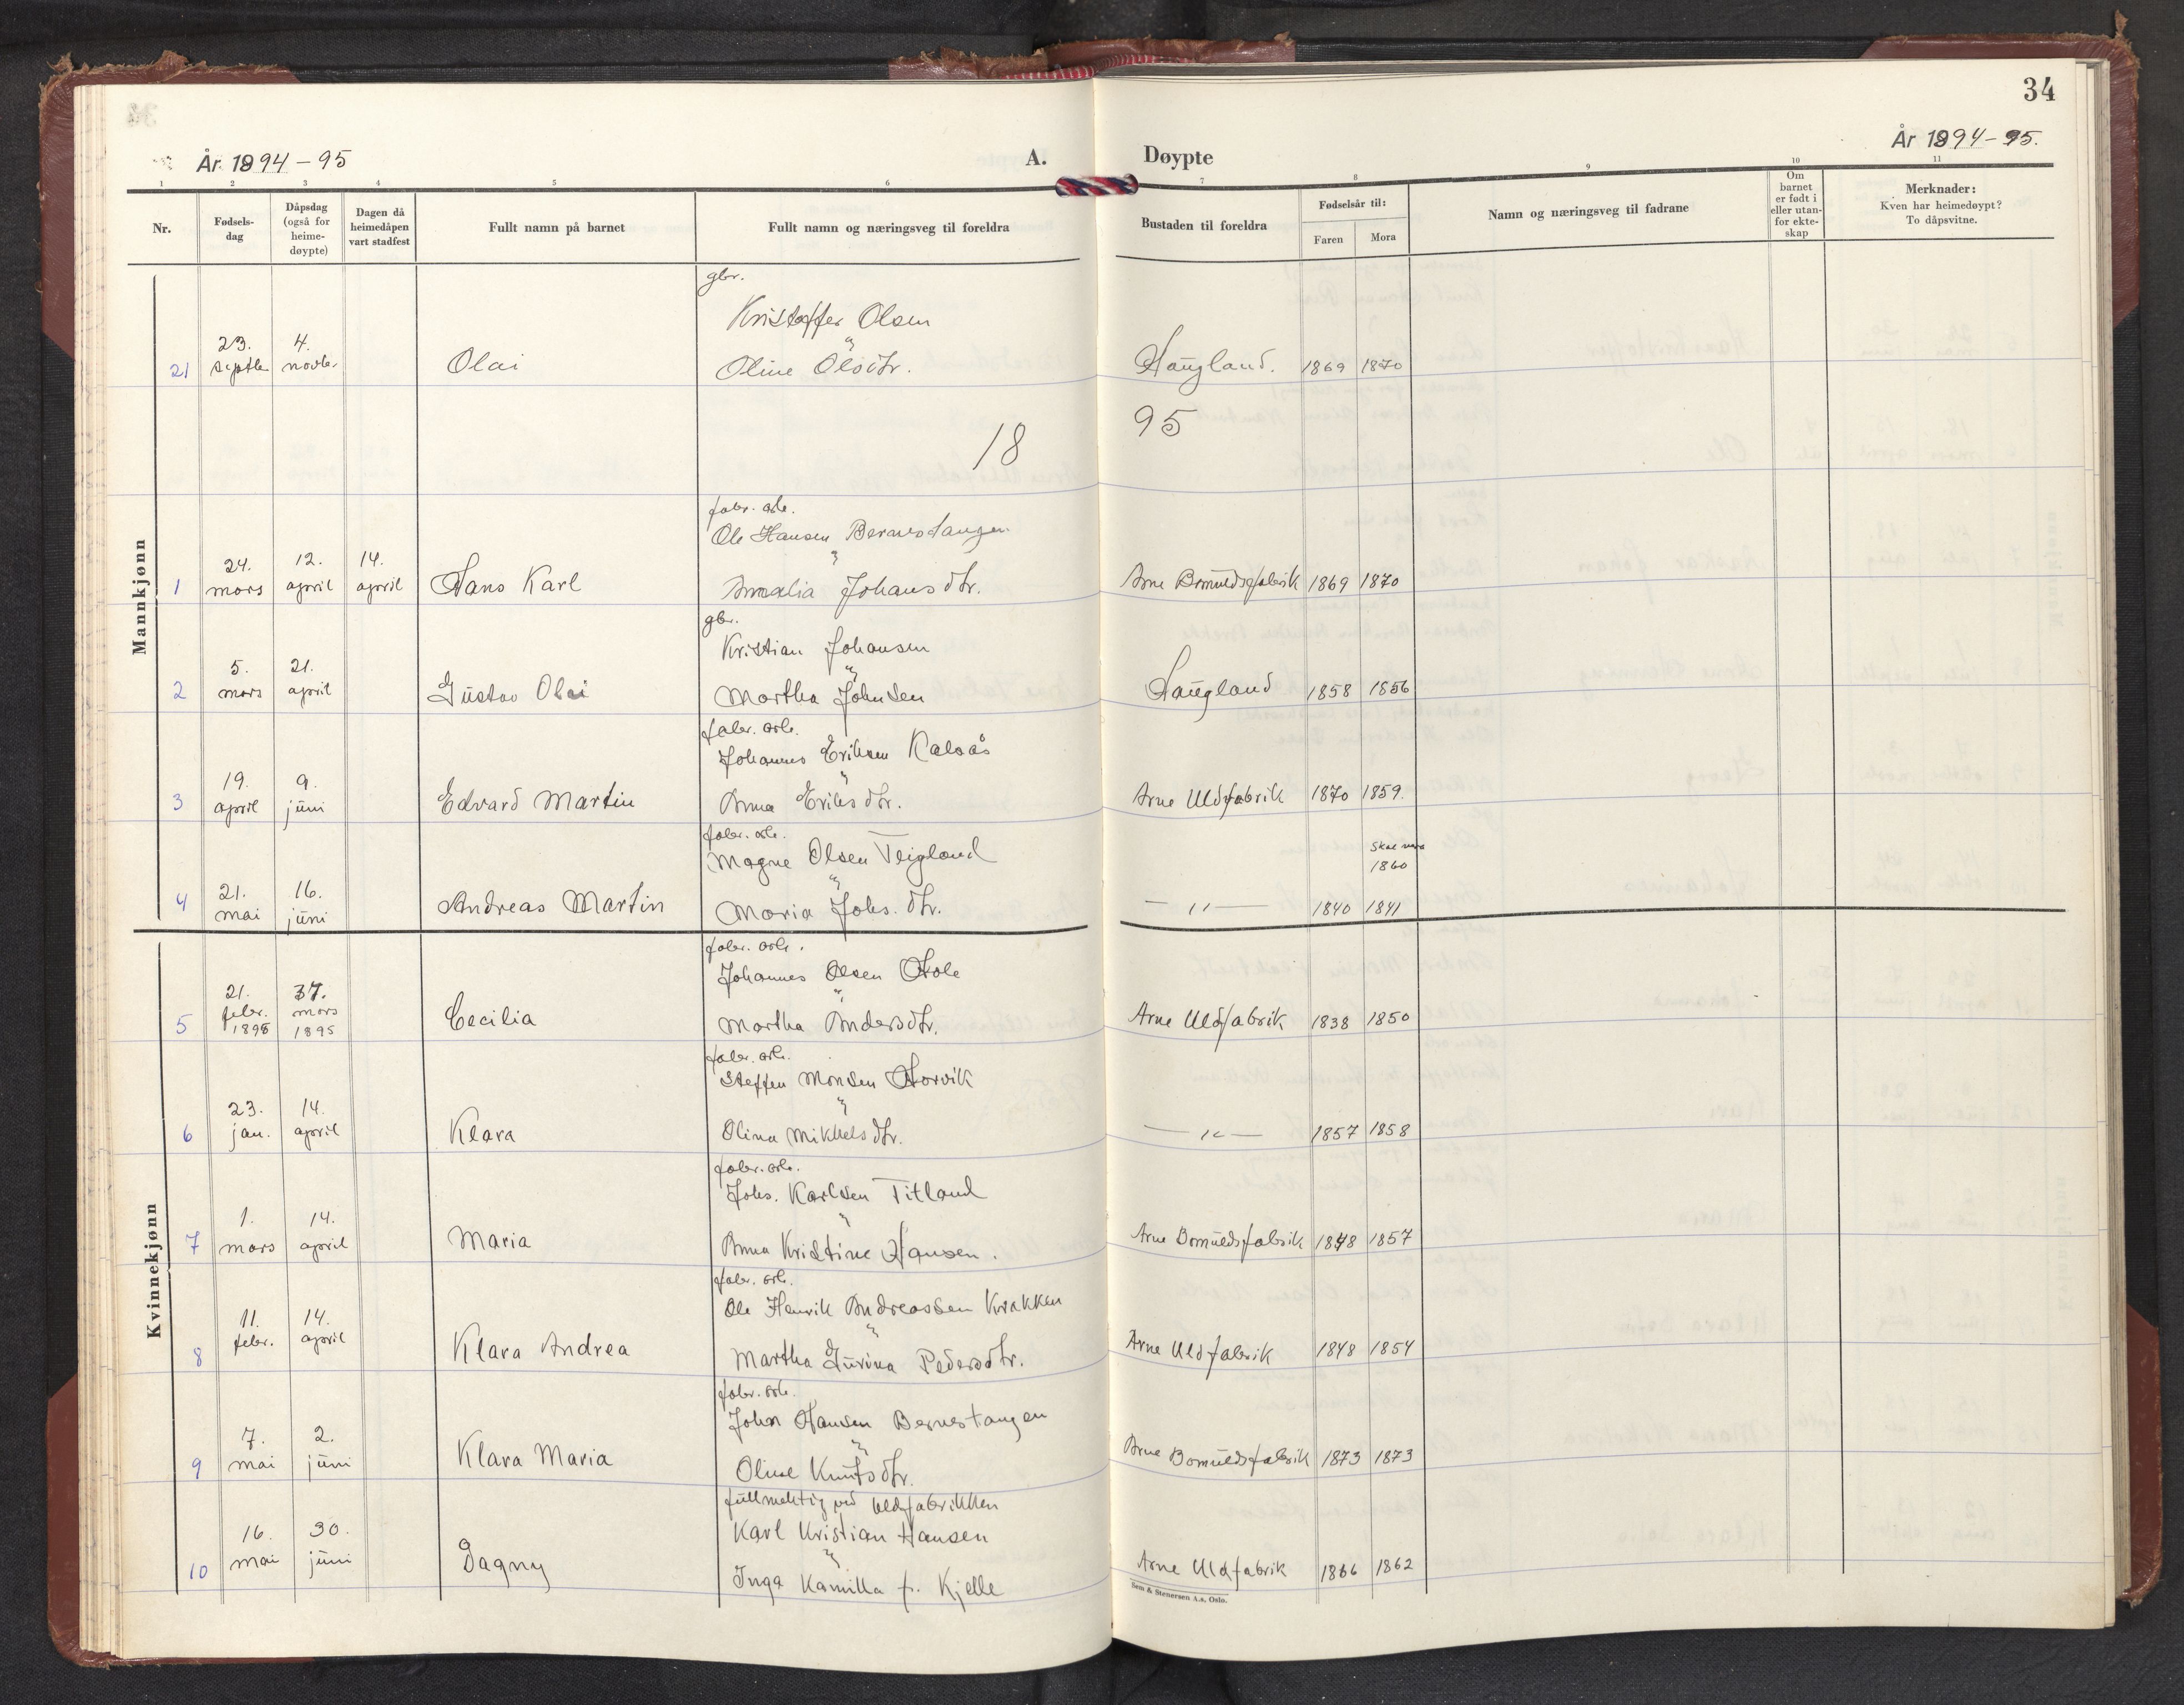 34
År 1894-95
A.
Døypte
År 1894-95.
1 2 3 4 5 6 7 8 9 10 11
Nr.
Fødsels-
dag
Dåpsdag
(også for
heime-
døypte)
Dagen då
heimedåpen
vart stadfest
Fullt namn på barnet
Fullt namn og næringsveg til foreldra
Bustaden til foreldra
Fødselsår til:
Faren
Mora
Namn og næringsveg til fadrane
Om
barnet
er født i
eller utan-
for ekte-
skap
Merknader:
Kven har heimedøypt?
To dåpsvitne.
gbr.
Kristoffer Olsen
23. 4. "
21 septbr novbr Olai Oline Olsdtr. Haugland. 1869 1870
18 95
Mannkjønn
fabr. arb.
Ole Hansen Bernestangen
24. 12. 14. "
1 mars april april Hans Karl Amalia Johansdtr. Arne Bomuldsfabrik 1869 1870
gbr.
Kristian Johansen
5. 21. "
2 mars april Gustav Olai Martha Johnsen Haugland 1858 1856
fabr. arb.
Johannes Eriksen Kalvås
19. 9. "
3 april juni Edvard Martin Anna Eriksdtr. Arne Uldfabrik 1870 1859.
fabr. arb.
Magne Olsen Teigland Skal vera
21. 16. " 1860
4 mai juni Andreas Martin Maria Johs. dtr. — " — 1840 1841
Kvinnekjønn
fabr. arb.
Johannes Olsen Hole
21. 31. "
febr. mars
5 1895 1895 Cecilia Martha Andersdtr. Arne Uldfabrik 1838 1850
fabr. arb.
Steffen Monsen Horvik
23. 14. "
6 jan. april Klara Olina Mikkelsdtr. — " — 1857 1858
fabr. arb.
Johs. Karlsen Titland
1. 14. "
7 mars april Maria Anna Kristine Hansen. Arne Bomuldsfabrik 1848 1857
fabr. arb.
Ole Henrik Andreassen Krakken
11. 14. "
8 febr. april Klara Andrea Martha Gurina Pedersdtr. Arne Uldfabrik 1848 1854
fabr. arb.
John Hansen Bernestangen
7. 2. "
9 mai juni Klara Maria Oline Knutsdtr. Arne Bomuldsfabrik 1873 1873
fullmektig ved Uldfabrikken
Karl Kristian Hansen
16. 30. "
10 mai juni Dagny Inga Kamilla f. Kjelle Arne Uldfabrik 1866 1862
Sem & Stenersen A.s, Oslo.